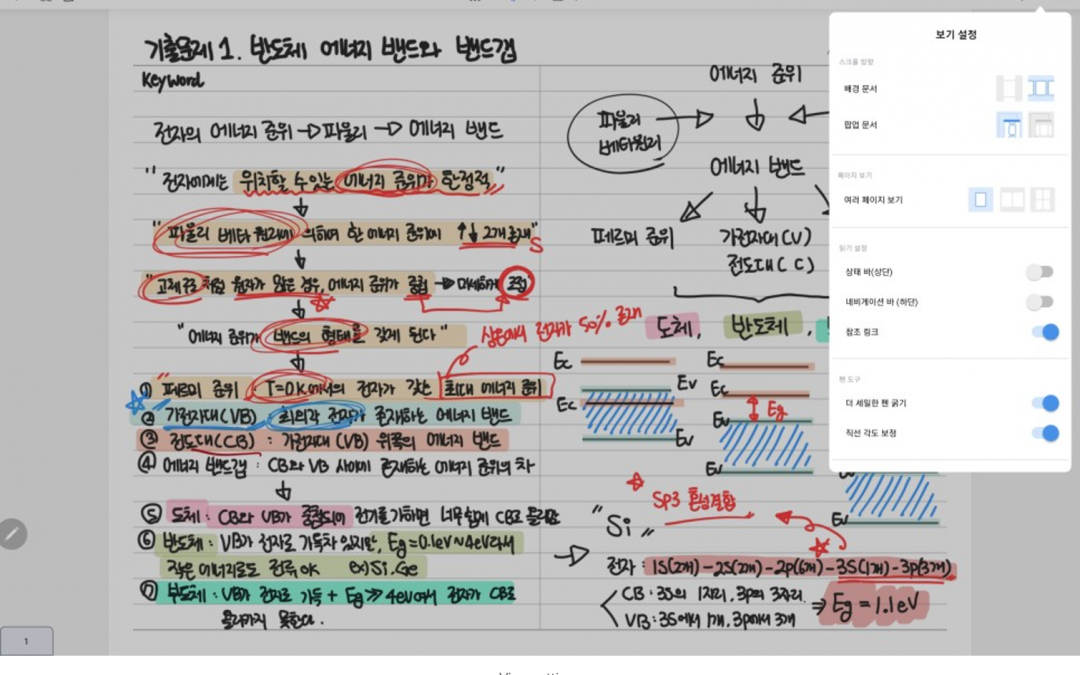 기출문제 1. 반도체 에너지 밴드와 밴드갭
Keyword
전자의 에너지 준위 → 파울리 → 에너지 밴드
"전자에게는 위치할 수 있는 에너지 준위가 한정적"
↓
"파울리 베타원리에 의하여 한 에너지 준위에 ↑↓ 2개 존재"
S
↓
"고체구조처럼 원자가 많은 경우, 에너지 준위가 중첩 → 미세하게 조정"
↓
"에너지 준위가 밴드의 형태를 갖게 된다"
상온에서 전자가 50% 존재
↓
① 페르미 준위 : T=0K에서의 전자가 갖는 최대 에너지 준위
② 가전자대(VB) : 최외각 전자가 존재하는 에너지 밴드
③ 전도대(CB) : 가전자대(VB) 위쪽의 에너지 밴드
④ 에너지 밴드갭 : CB와 VB 사이에 존재하는 에너지 준위의 차
↓
⑤ 도체 : CB와 VB가 중첩되어 전기를 가하면 너무쉽게 CB로 올라감
⑥ 반도체 : VB가 전자로 가득차 있지만, Eg=0.1eV~4eV라서
작은 에너지로도 전류 OK ex) Si, Ge
⑦ 부도체 : VB가 전자로 가득 + Eg≫4eV여서 전자가 CB로
올라가지 못한다.
에너지 준위
파울리
베타원리
에너지 밴드
페르미 준위
가전자대(V)
전도대(C)
도체, 반도체,
Ec
Ev
Ec
Ev
Ec
Ec
Eg
Ev
Ev
Ev
SP3 혼성결합
"Si"
전자 : 1S(2개)-2S(2개)-2p(6개)-3S(1개)-3p(3개)
CB : 3S의 1자리, 3p의 3자리
VB : 3S에서 1개, 3p에서 3개
⇒ Eg=1.1eV
보기 설정
스크롤 방향
배경 문서
팝업 문서
페이지 보기
여러 페이지 보기
읽기 설정
상태 바(상단)
네비게이션 바 (하단)
참조 링크
펜 도구
더 세밀한 펜 굵기
직선 각도 보정
1